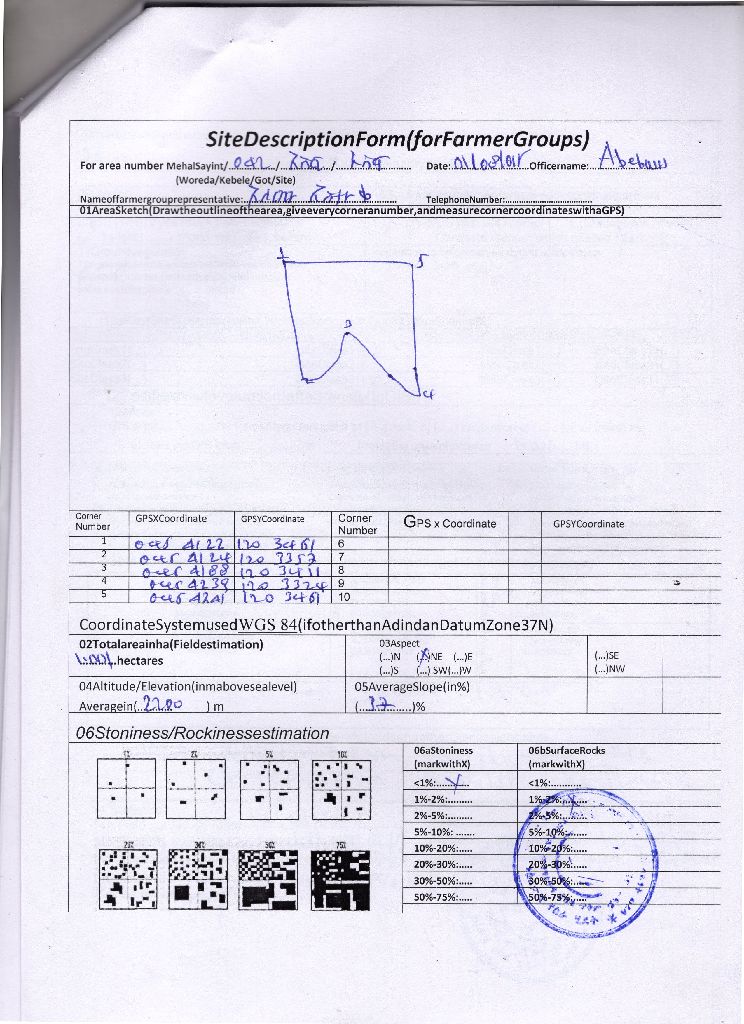 SiteDescriptionForm(forFarmerGroups)
For area number MehalSayint/ / / Date: Officername: Abebaw
(Woreda/Kebele/Got/Site)
Nameoffarmergrouprepresentative: TelephoneNumber:
01AreaSketch(Drawtheoutlineofthearea,giveeverycorneranumber,andmeasurecornercoordinateswithaGPS)
1 5
3
2 4
Corner Number GPSXCoordinate GPSYCoordinate Corner Number GPS x Coordinate GPSYCoordinate
1 4122 120 3461 6
2 4124 120 3357 7
3 4188 120 3411 8
4 4239 120 3324 9
5 4241 120 3461 10
CoordinateSystemusedWGS 84(ifotherthanAdindanDatumZone37N)
02Totalareainha(Fieldestimation) hectares
03Aspect
(...)N (X)NE (...)E (...)SE
(...)S (...) SW(...)W (...)NW
04Altitude/Elevation(inmabovesealevel)
Averagein(..2200 ) m
05AverageSlope(in%)
(...37...)%
06Stoniness/Rockinessestimation
1% 2% 5% 10%
20% 30% 50% 75%
06aStoniness (markwithX) 06bSurfaceRocks (markwithX)
<1%:...X... <1%:...........
1%-2%:......... 1%-2%:...X
2%-5%:......... 2%-5%:......
5%-10%: ....... 5%-10%:......
10%-20%:..... 10%-20%:.....
20%-30%:..... 20%-30%:.....
30%-50%:..... 30%-50%:.....
50%-75%:..... 50%-75%:.....